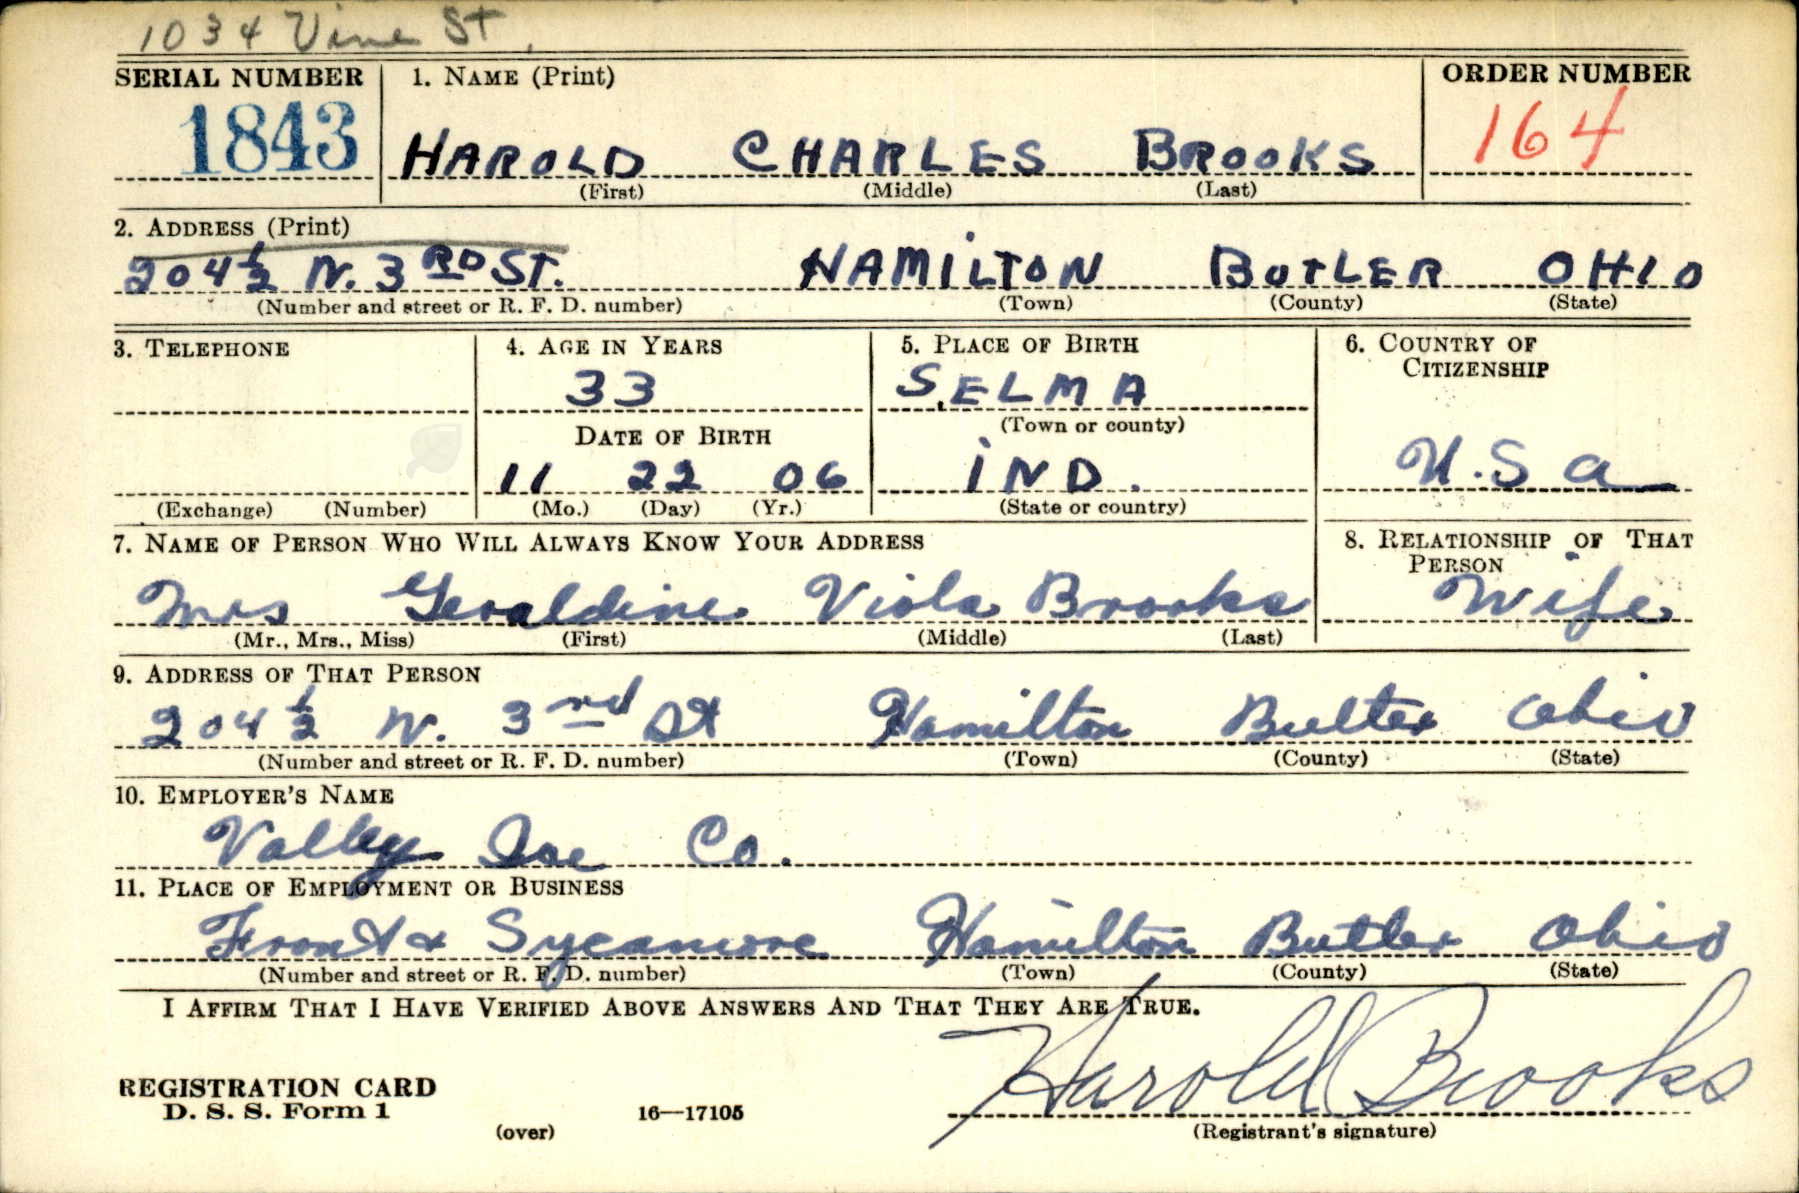 1034 Vine St,
SERIAL NUMBER 1. NAME (Print) ORDER NUMBER
1843 HAROLD CHARLES BROOKS 164
(First) (Middle) (Last)
2. ADDRESS (Print)
204½ N. 3RD ST. HAMILTON BUTLER OHIO
(Number and street or R. F. D. number) (Town) (County) (State)
3. TELEPHONE 4. AGE IN YEARS 5. PLACE OF BIRTH 6. COUNTRY OF CITIZENSHIP
33 SELMA
DATE OF BIRTH (Town or county)
11 22 06 IND. U.S a
(Exchange) (Number) (Mo.) (Day) (Yr.) (State or country)
7. NAME OF PERSON WHO WILL ALWAYS KNOW YOUR ADDRESS 8. RELATIONSHIP OF THAT PERSON
Mrs Geraldine Viola Brooks Wife
(Mr., Mrs., Miss) (First) (Middle) (Last)
9. ADDRESS OF THAT PERSON
204½ N. 3rd St Hamilton Butler Ohio
(Number and street or R. F. D. number) (Town) (County) (State)
10. EMPLOYER'S NAME
Valley Ice Co.
11. PLACE OF EMPLOYMENT OR BUSINESS
Front & Sycamore Hamilton Butler Ohio
(Number and street or R. F. D. number) (Town) (County) (State)
I AFFIRM THAT I HAVE VERIFIED ABOVE ANSWERS AND THAT THEY ARE TRUE.
Harold Brooks
REGISTRATION CARD
D. S. S. Form 1 16—17105
(over) (Registrant's signature)